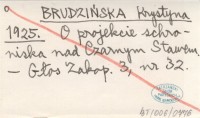 BRUDZIŃSKA Krystyna
1925. O projekcie schro-
niska nad Czarnym Stawem.
– Głos Zakop. 3, nr 32.